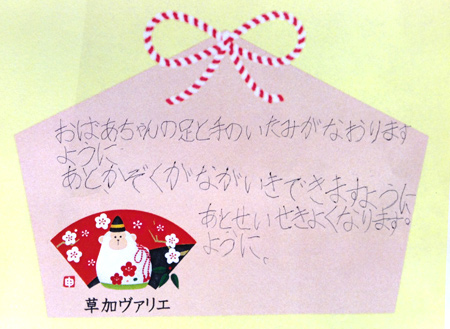 おばあちゃんの足と手のいたみがなおります
ように
あとかぞくがながいきできますように
あとせいせきよくなります。
ように。
申
草加ヴァリエ